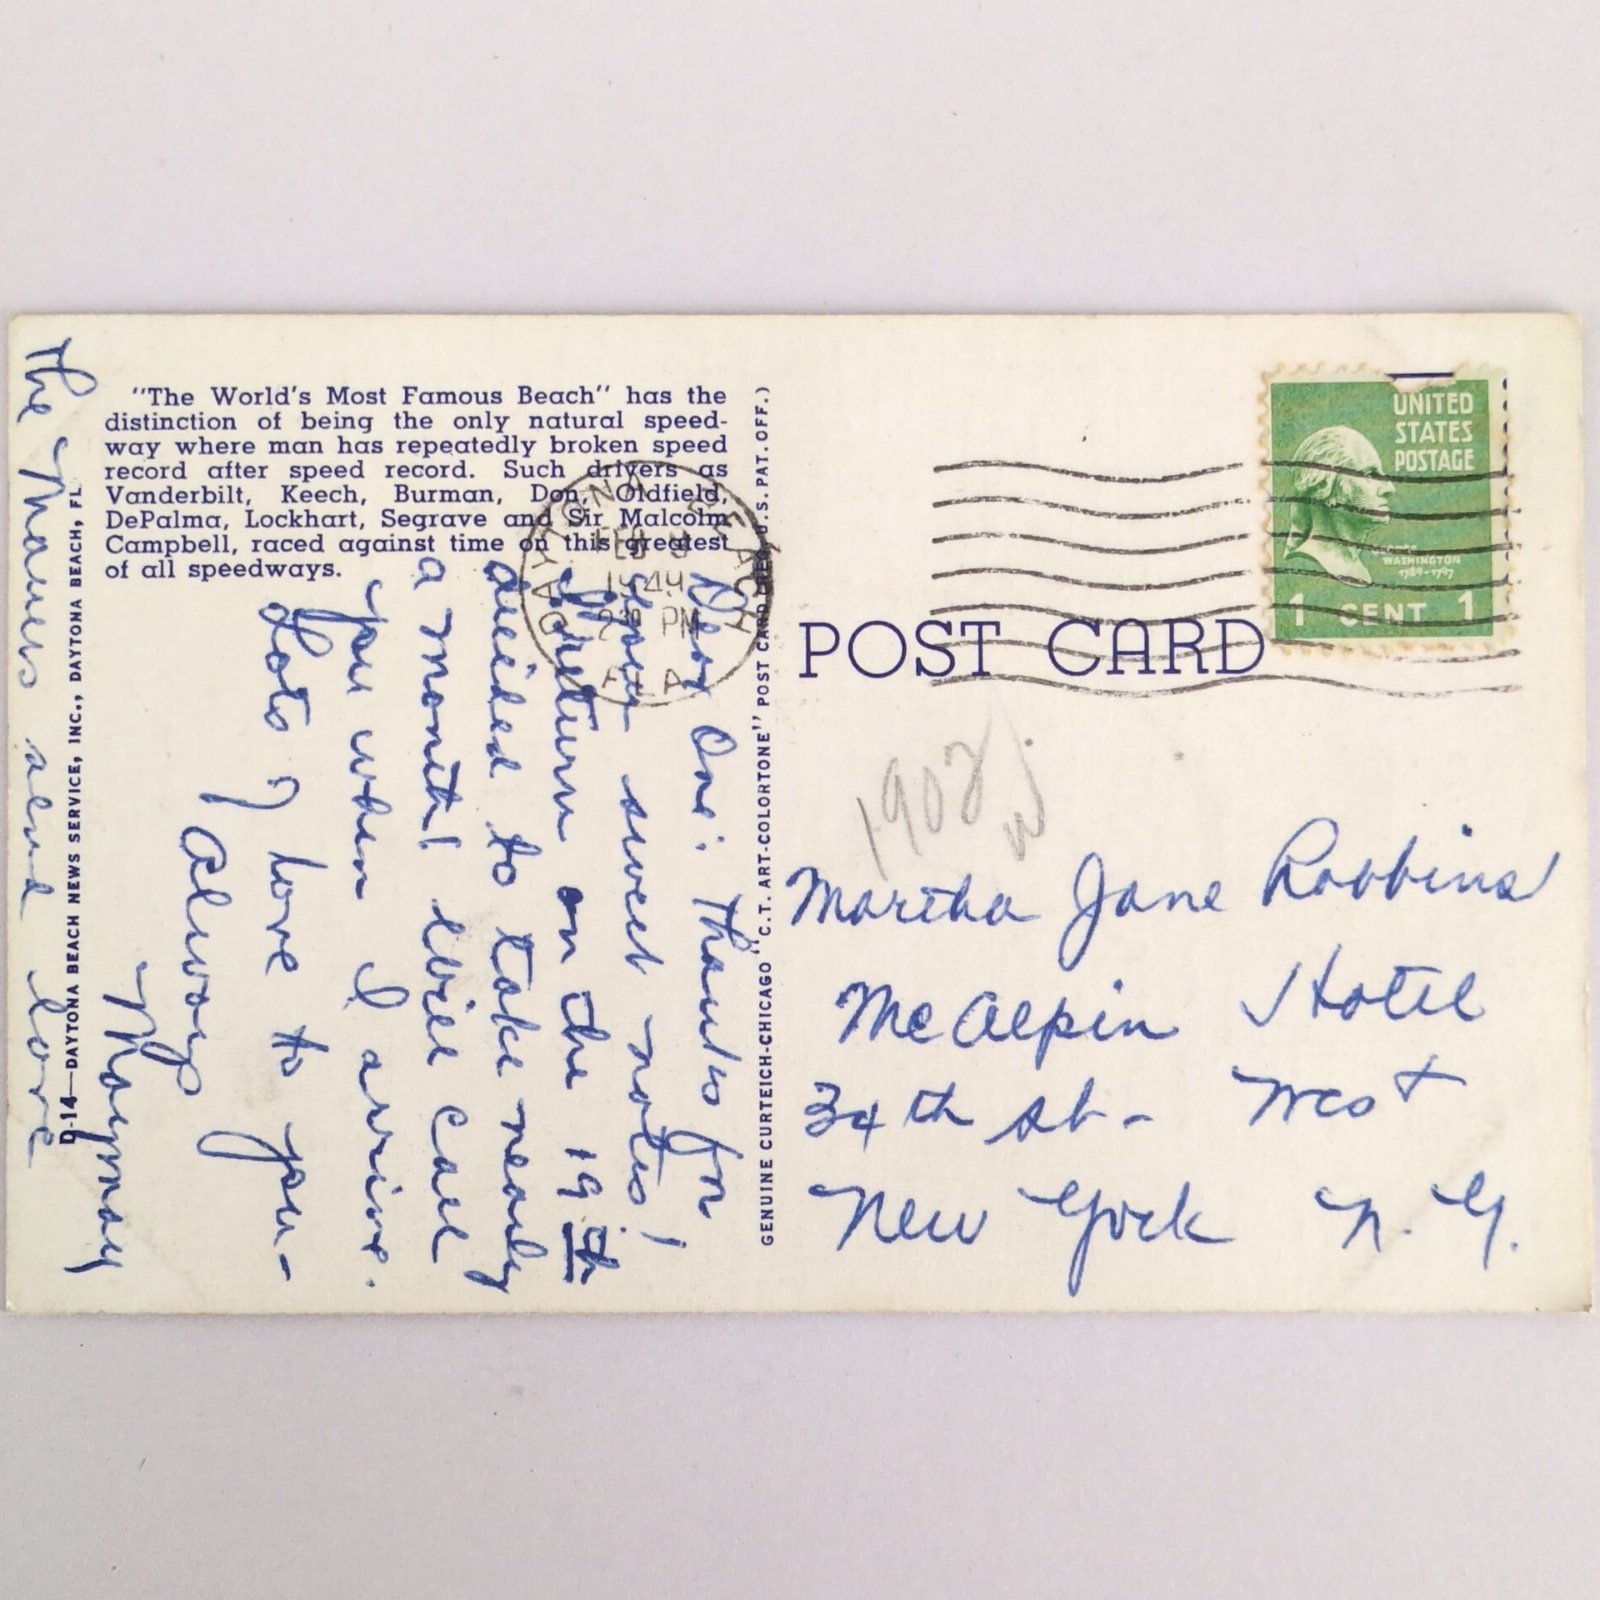 "The World's Most Famous Beach" has the
distinction of being the only natural speed-
way where man has repeatedly broken speed
record after speed record. Such drivers as
Vanderbilt, Keech, Burman, Don, Oldfield,
DePalma, Lockhart, Segrave and Sir Malcolm
Campbell, raced against time on this greatest
of all speedways.
D-14—DAYTONA BEACH NEWS SERVICE, INC., DAYTONA BEACH, FL
Dear One: Thanks for
your sweet notes!
I return on the 19th
decided to take nearly
a month! Will call
you when I arrive.
Lots of love to you-
Always
The send love
GENUINE CURTEICH-CHICAGO "C.T. ART-COLORTONE" POST CARD U.S. PAT. OFF.)
DAYTONA BEACH
FEB
1944
PM
FLA
UNITED
STATES
POSTAGE
WASHINGTON
1789-1797
1 CENT 1
POST CARD
1902
W.
Martha Jane Robbins
McAlpin Hotel
34th St- West
New York N.Y.